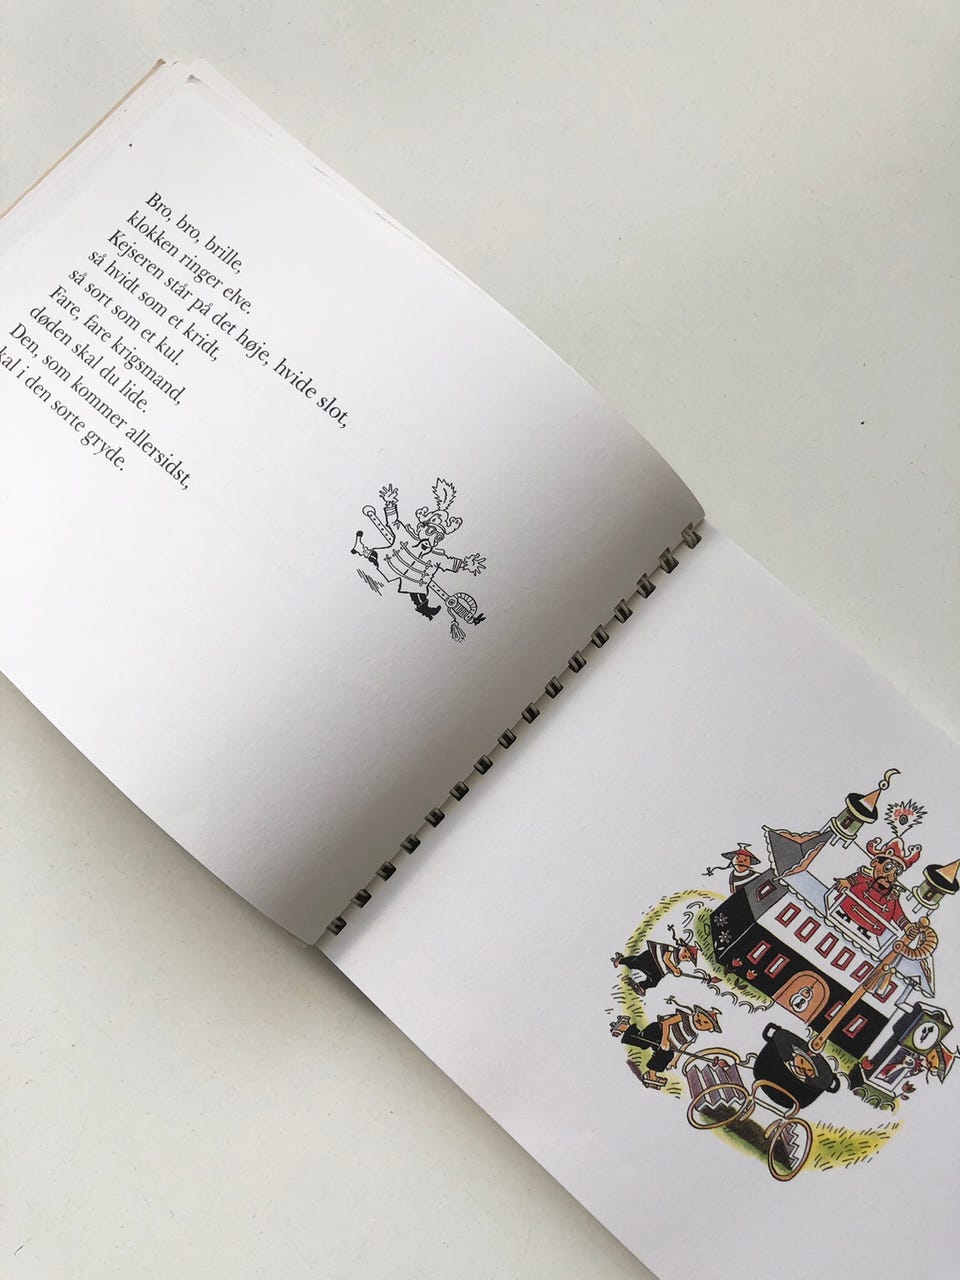 Bro, bro, brille,
klokken ringer elve.
Kejseren står på det høje, hvide slot,
så hvidt som et kridt,
så sort som et kul.
Fare, fare krigsmand,
døden skal du lide.
Den, som kommer allersidst,
kal i den sorte gryde.